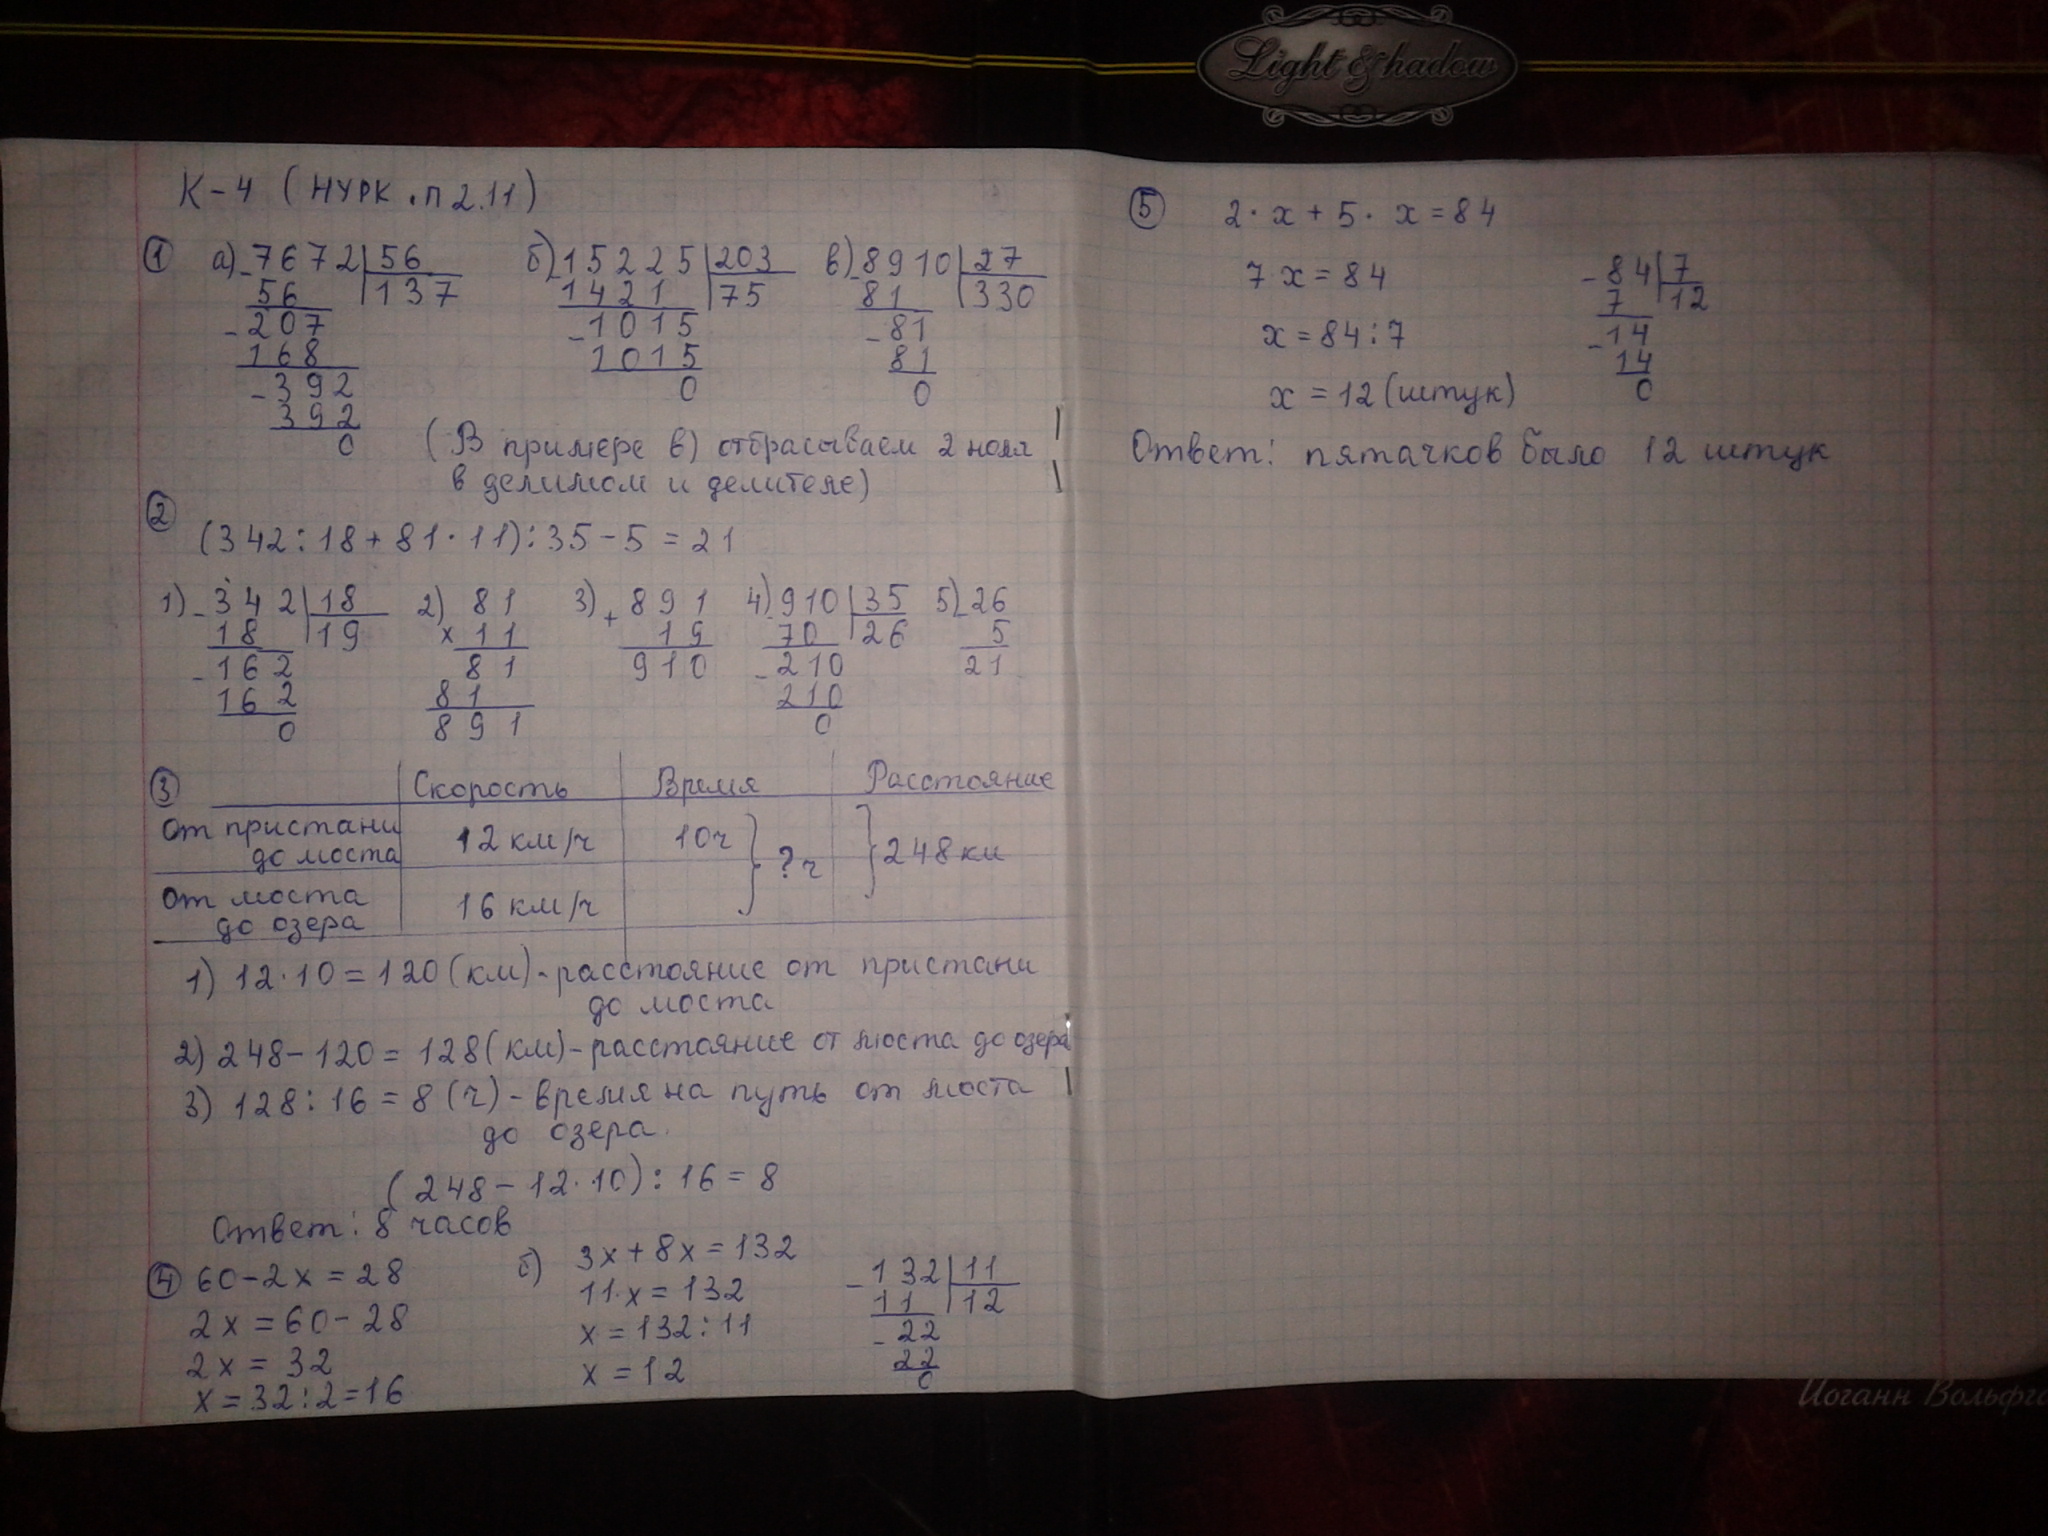 Light & Shadow
К-4 (НУРК. П 2.11)
① а) -7672 | 56
56 | 137
-207
168
-392
392
0
б) -15225 | 203
1421 | 75
-1015
1015
0
в) -8910 | 27
81 | 330
-81
81
0
(В примере в) отбрасываем 2 ноля
в делимом и делителе)
②
(342:18+81·11):35-5=21
1) -342 | 18
18 | 19
-162
162
0
2) 81
x 11
81
81
891
3) + 891
19
910
4) -910 | 35
70 | 26
-210
210
0
5) -26
5
21
③ Скорость Время Расстояние
от пристани
до моста 12 км/ч 10ч } ? ч } 248 км
от моста
до озера 16 км/ч
1) 12·10=120 (км)-расстояние от пристани
до моста
2) 248-120=128 (км)-расстояние от моста до озера
3) 128:16=8 (ч)-время на путь от моста
до озера.
(248-12·10):16=8
Ответ: 8 часов
④ 60-2x=28
2x=60-28
2x=32
x=32:2=16
б) 3x+8x=132
11·x=132
x=132:11
x=12
-132 | 11
11 | 12
-22
22
0
⑤ 2·x+5·x=84
7x=84
x=84:7
x=12 (штук)
-84 | 7
7 | 12
-14
14
0
Ответ: пятачков было 12 штук
Иоганн Вольфга